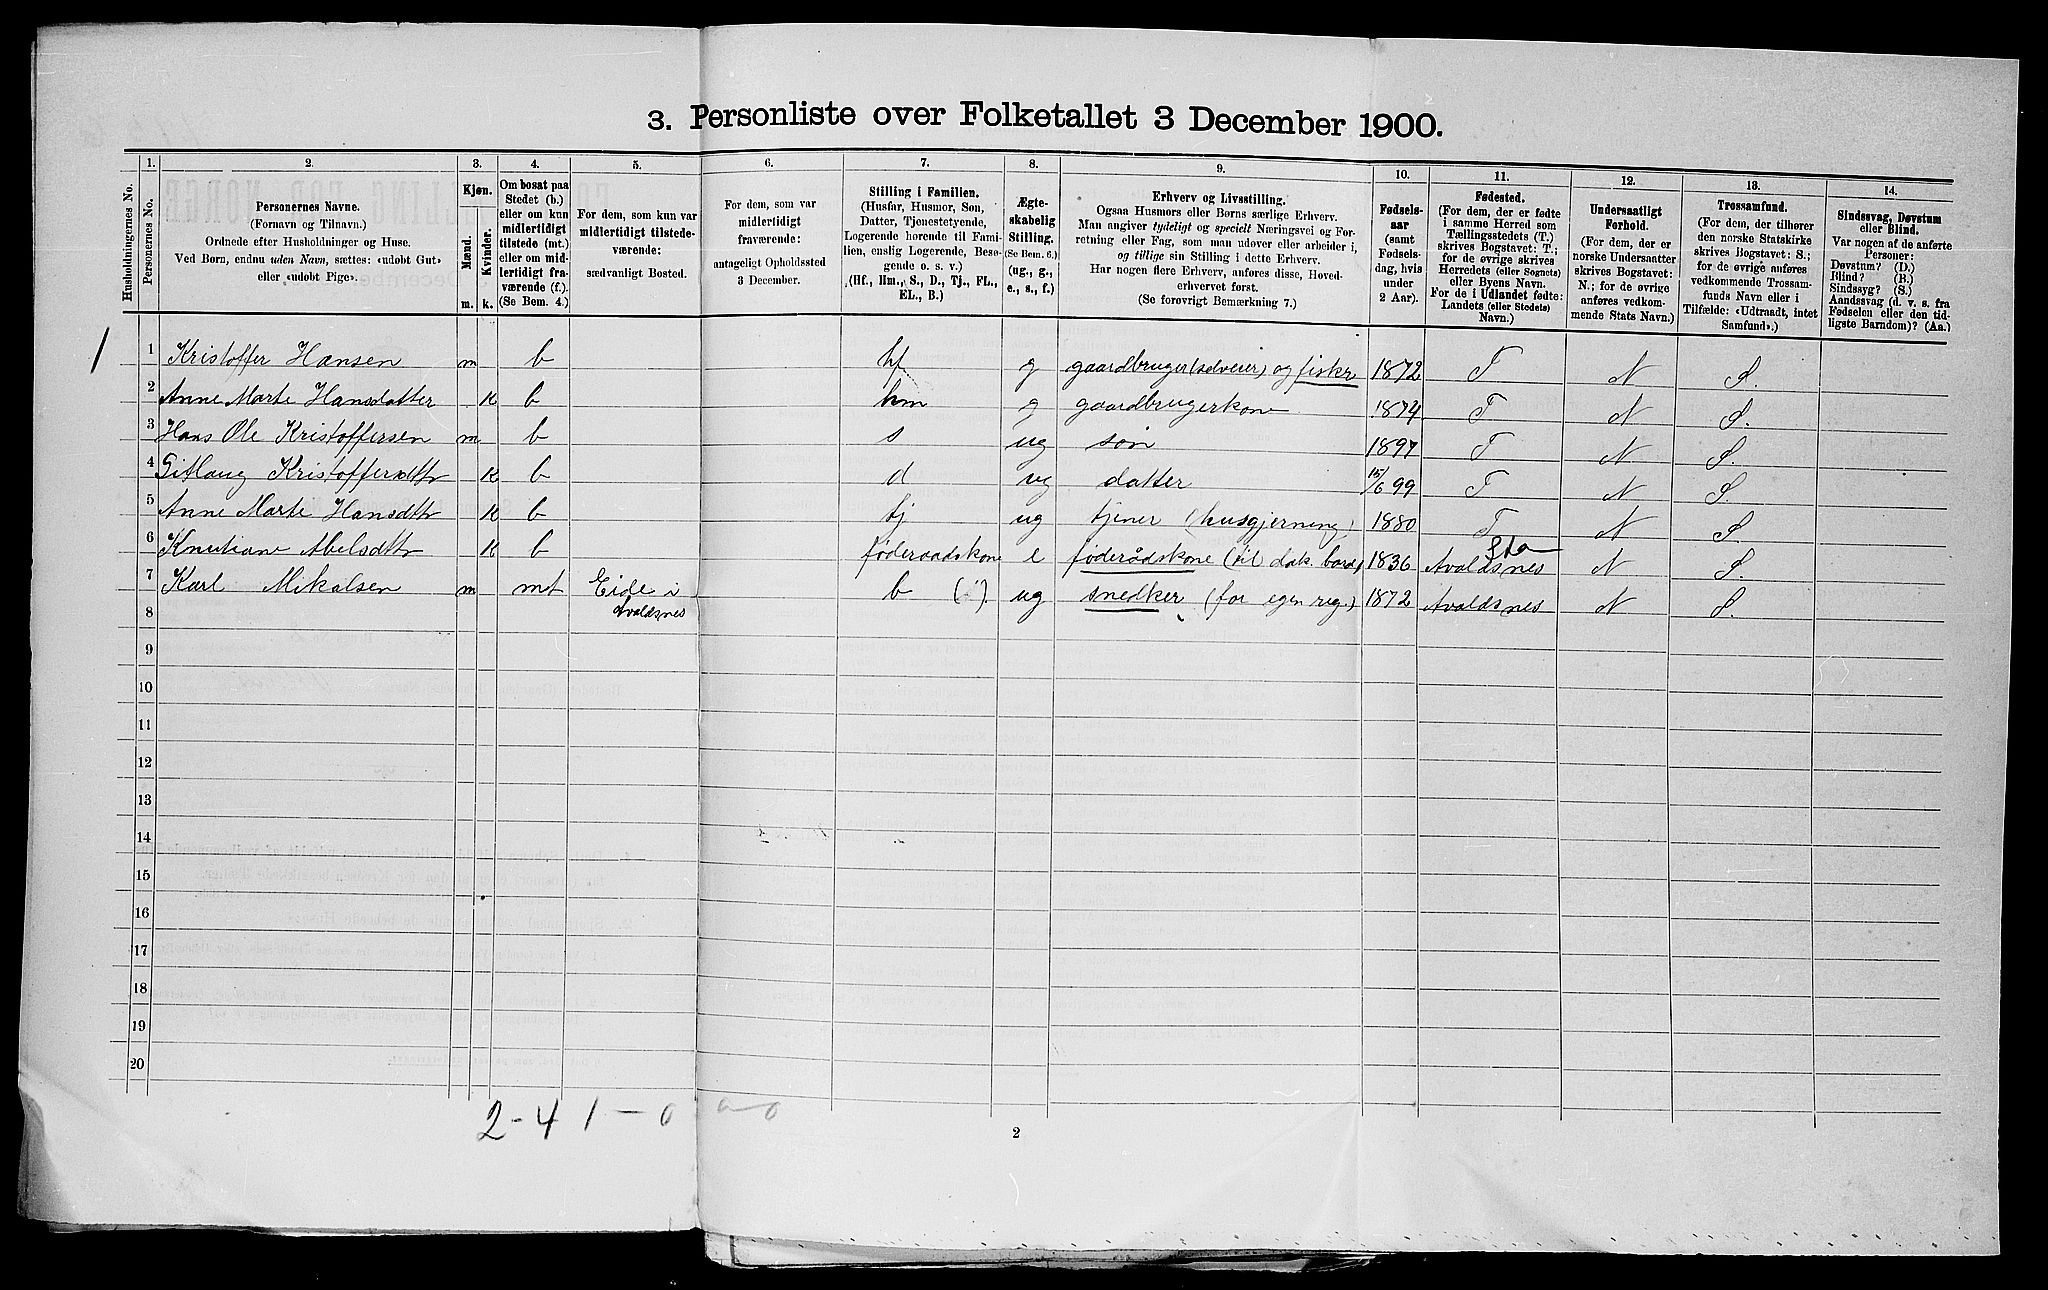 3. Personliste over Folketallet 3 December 1900.
Husholdningernes No.
1. Personernes No.
2. Personernes Navne.
(Fornavn og Tilnavn.)
Ordnede efter Husholdninger og Huse.
Ved Børn, endnu uden Navn, sættes: «udøbt Gut»
eller «udøbt Pige».
3. Kjøn.
Mænd. m.
Kvinder. k.
4. Om bosat paa
Stedet (b.)
eller om kun
midlertidigt
tilstede (mt.)
eller om mid-
lertidigt fra-
værende (f.)
(Se Bem. 4.)
5. For dem, som kun var
midlertidigt tilstede-
værende:
sædvanligt Bosted.
6. For dem, som var
midlertidigt
fraværende:
antageligt Opholdssted
3 December.
7. Stilling i Familien.
(Husfar, Husmor, Søn,
Datter, Tjenestetyende,
Logerende hørende til Fami-
lien, enslig Logerende, Besø-
gende o. s. v.)
(Hf., Hm., S., D., Tj., FL.,
EL., B.)
8. Ægte-
skabelig
Stilling.
(Se Bem. 6.)
(ug., g.,
e., s., f.)
9. Erhverv og Livsstilling.
Ogsaa Husmors eller Børns særlige Erhverv.
Man angiver tydeligt og specielt Næringsvei og For-
retning eller Fag, som man udøver eller arbeider i,
og tillige sin Stilling i dette Erhverv.
Har nogen flere Erhverv, anføres disse, Hoved-
erhvervet først.
(Se forøvrigt Bemærkning 7.)
10. Fødsels-
aar
(samt
Fødsels-
dag, hvis
under
2 Aar).
11. Fødested.
(For dem, der er fødte
i samme Herred som
Tællingsstedets (T.)
skrives Bogstavet: T.;
for de øvrige skrives
Herredets (eller Sognets)
eller Byens Navn.
For de i Udlandet fødte:
Landets (eller Stedets)
Navn.)
12. Undersaatligt
Forhold.
(For dem, der er
norske Undersaatter
skrives Bogstavet:
N.; for de øvrige
anføres vedkom-
mende Stats Navn.)
13. Trossamfund.
(For dem, der tilhører
den norske Statskirke
skrives Bogstavet: S.;
for de øvrige anføres
vedkommende Trossam-
funds Navn eller i
Tilfælde: «Udtraadt, intet
Samfund».)
14. Sindssvag, Døvstum
eller Blind.
Var nogen af de anførte
Personer:
Døvstum? (D.)
Blind? (B.)
Sindssyg? (S.)
Aandssvag (d. v. s. fra
Fødselen eller den tid-
ligste Barndom)? (Aa.)
1 1 Kristoffer Hansen m b hf g gaardbruger (selveier) og fisker 1872 T N S.
2 Anne Marte Hansdatter K b hm g gaardbrugerkone 1874 T N S.
3 Hans Ole Kristoffersen m b s ug søn 1897 T N S.
4 Gitlaug Kristoffersdtr K b d ug datter 15/6 99 T N S.
5 Anne Marte Hansdtr K b tj ug tjener (husgjerning) 1880 T N S.
6 Abelsdtr K b føderaadskone e føderådskone 1836 Avaldsnes N S.
7 Karl Mikalsen m mt Eide i Avaldsnes b ug snedker (for egen reg.) 1872 Avaldsnes N S.
8
9
10
11
12
13
14
15
16
17
18
19
20
2-41-0 0-0
2